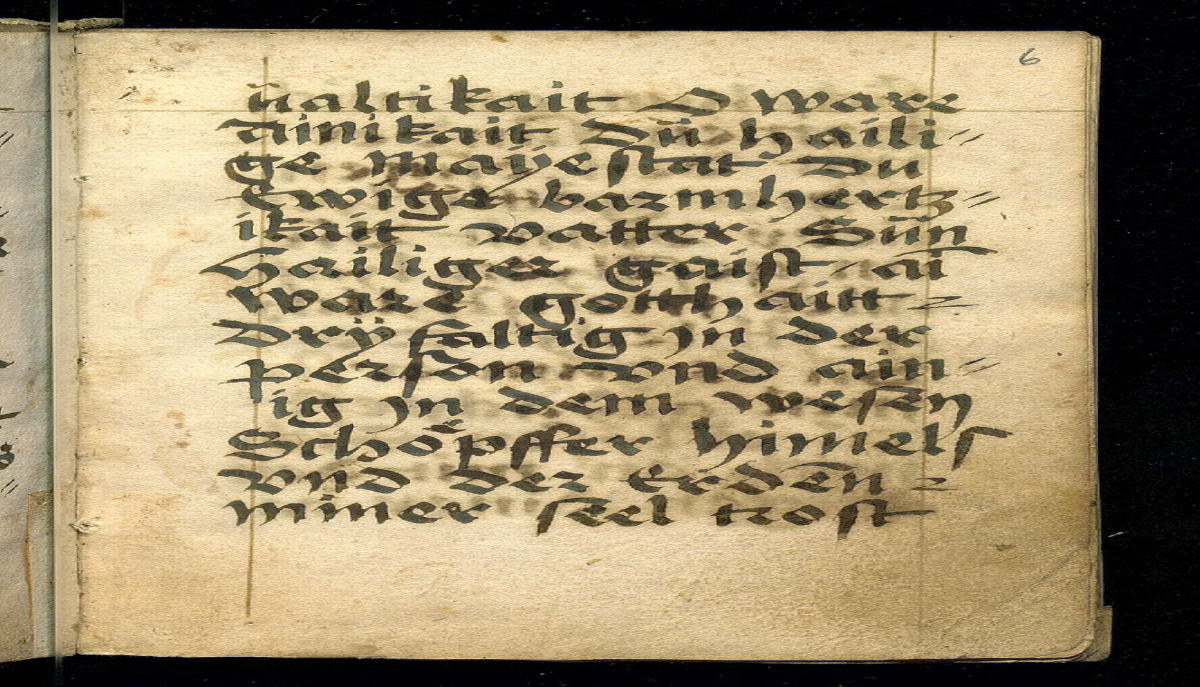 6
ualtikait O ware
ainikait dü haili=
ge Mayestat du
ewige barmhertz=
ikait vatter Sün
hailiger gaist ai
ware gotthaitt=
drÿ faltig jn der
person vnd ain=
ig jn dem wesen
Schöpffer himels
vnd der Erden=
miner seel trost